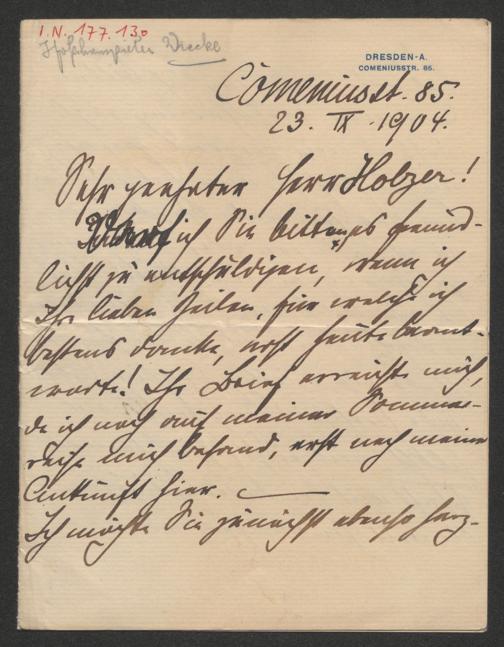 I.N. 177.130
Hofschauspieler Wiecke
DRESDEN-A.
COMENIUSSTR. 85.
Comeniusst. 85.
23. IX. 1904.
Sehr geehrter Herr Holzer!
Darf ich Sie bitten, es freund-
lichst zu entschuldigen, wenn ich
Ihre lieben Zeilen, für welche ich
bestens danke, erst heute beant-
worte! Ihr Brief erreichte mich,
da ich noch auf meiner Sommer-
reise mich befand, erst nach meiner
Ankunft hier.
Ich möchte Sie zunächst ebenso herz-